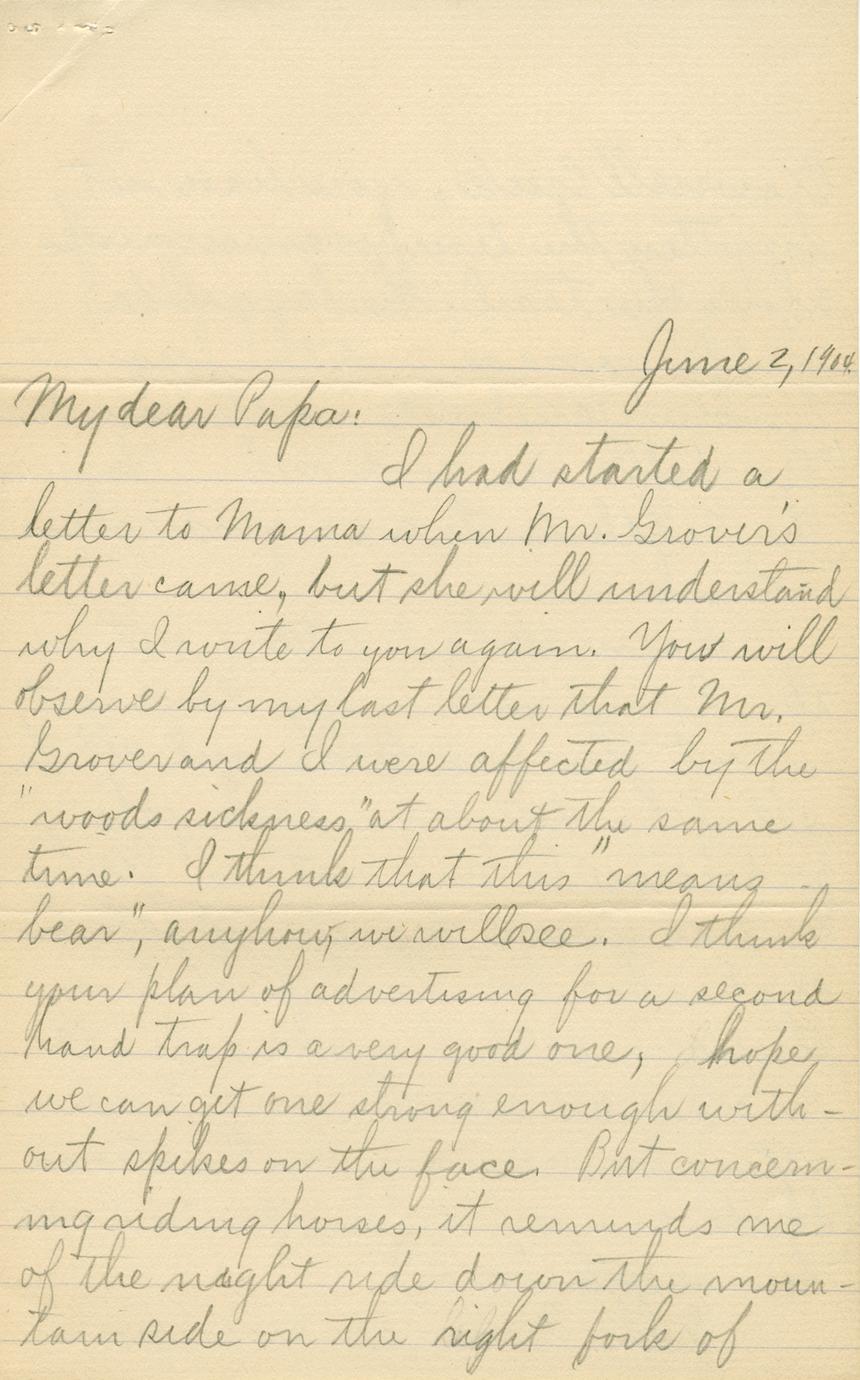 June 2, 1904.
My dear Papa:
I had started a
letter to Mama when Mr. Grover's
letter came, but she will understand
why I write to you again. You will
observe by my last letter that Mr.
Grover and I were affected by the
"woods sickness" at about the same
time. I think that this "means
bear", anyhow, we will see. I think
your plan of advertising for a second
hand trap is a very good one, I hope
we can get one strong enough with-
out spikes on the face. But concern-
ing riding horses, it reminds me
of the night ride down the moun-
tain side on the right fork of